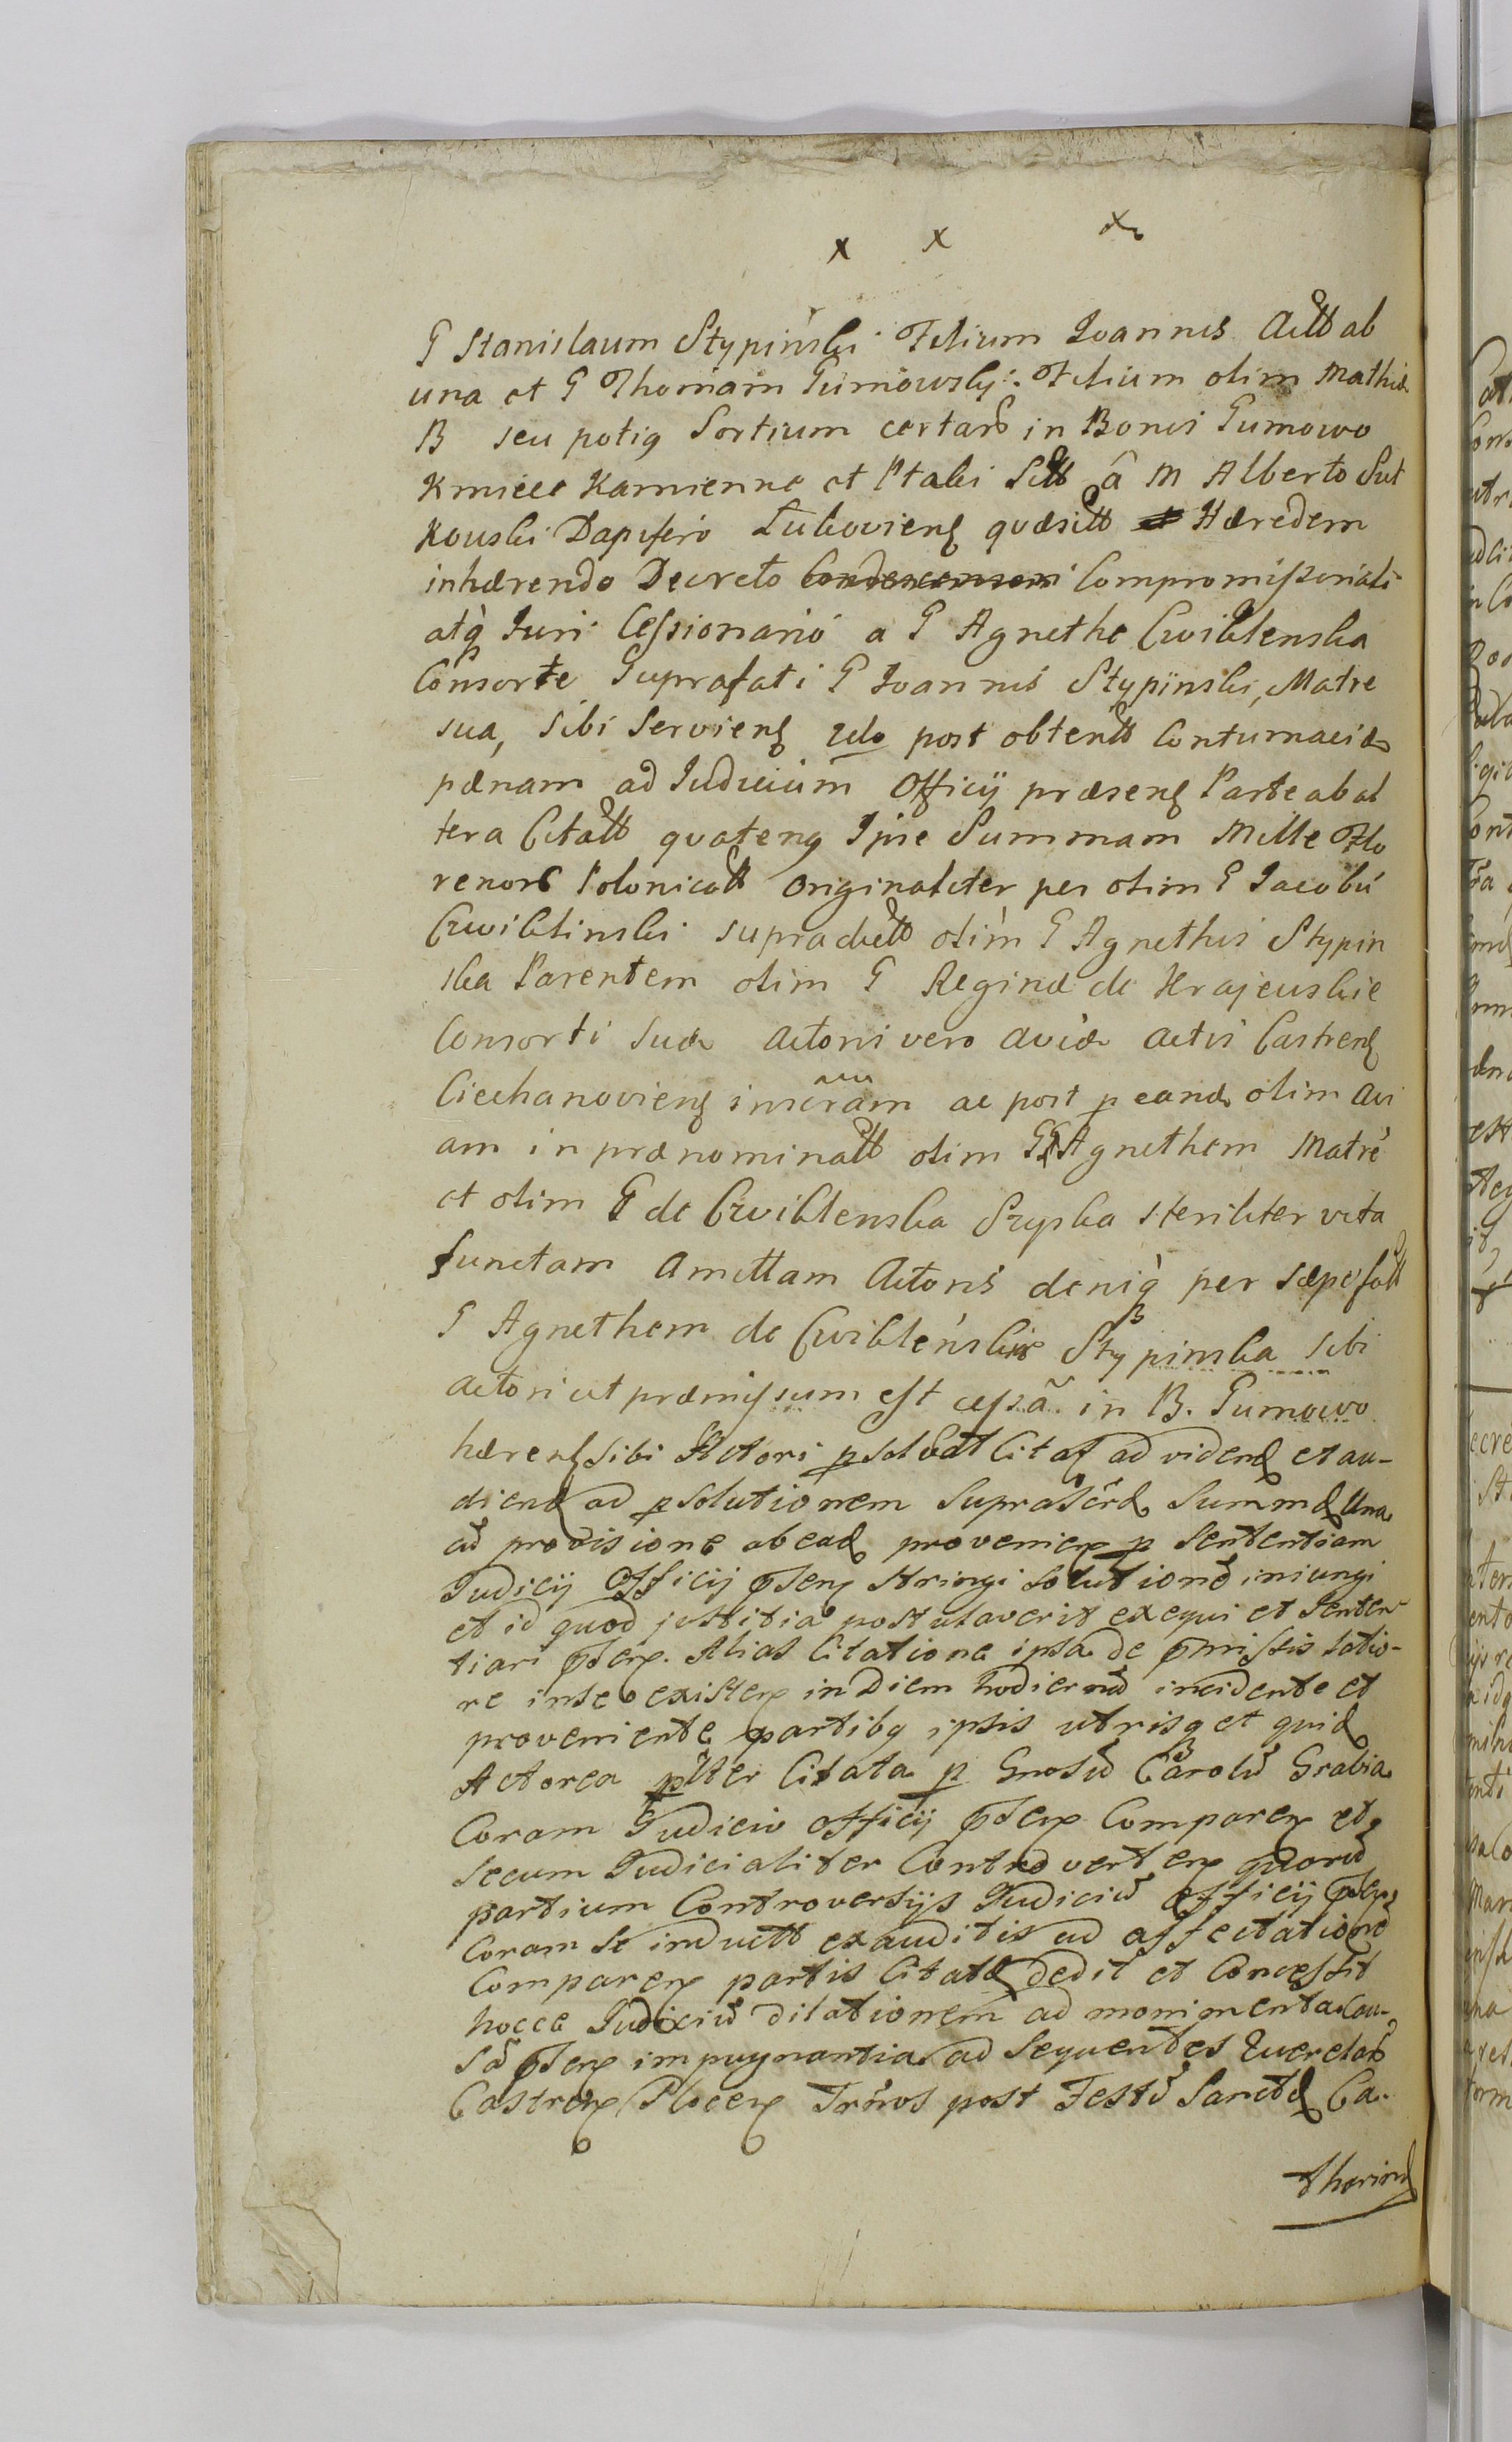 x x x
G Stanislaum Stypinski Filium Ioannis Actt ab
una et G Thomam Gumowsky Filium olim Mathiæ
B seu potig Sortium certar in Bonis Gumowo
Kmiece Kamienne et Ptaki Sitt â M Alberto Sut
kouski Dapifero Lukoviens quæsitt Hæredem
inhærendo Decreto Condescensori Compromissoriali
atq Iuri Cessionario a G Agnethe Cwiklenska
Consorte Suprafati G Ioannis Stypinski, Matre
sua, sibi serviens post obtentt Contumaciæ
pænam ad Iudicium Officij præsens Parte ab al
tera Citatt quateng Ipse Summam Mille Flo
renor Polonicatt Originaliter per olim G Iacobu
Cwiklinski supradictt olim G Agnethis Stypin
ska Parentem olim G Reginæ de Krajewskie
Consorti suæ Actoris vero aviæ Actis Castrens
Ciechanoviens inscram ac post p eand olim Avi
am in prænominatt olim GG Agnethem Matre
et olim G de Cwiklenska Szyska steriliter vita
functam Amittam Actoris deniq per sæpefatt
G Agnethem de Cwiklenskie Stypinska sibi
Actori ut præmissum est cessã in B. Gumowo
hærens sibi Actori psolvat Citat ad videnđ et au-
diend ad psolutionem suprascrd Summæ Una
cu provisione abead provenien p Sententiam
Iudicij Officij psens stringi solutione iniungi
et id quod justitia postulaverit exequi et senten
tiari psens. Alias Citatione ipsa de pmissis latio-
re in se existen in Diem hodiernu incidente et
proveniente partibg ipsis utrisq et quid
Actorea plter Citata p Gnosu Carolu Grabia
Coram Iudicio Officij psens Comparen et
secum Iudicialiter Controverten quoru
partium Controversijs Iudiciu Officij psens
Coram se inductt exauditis ad affectatione
Comparen partis Citatæ dedit et Concessit
hocce Iudiciu dilationem ad monimenta Cau-
sã psens impugnantia ad sequentes Querelar
Castren Plocen Trnos post Festu Sanctæ Ca-
tharinæ